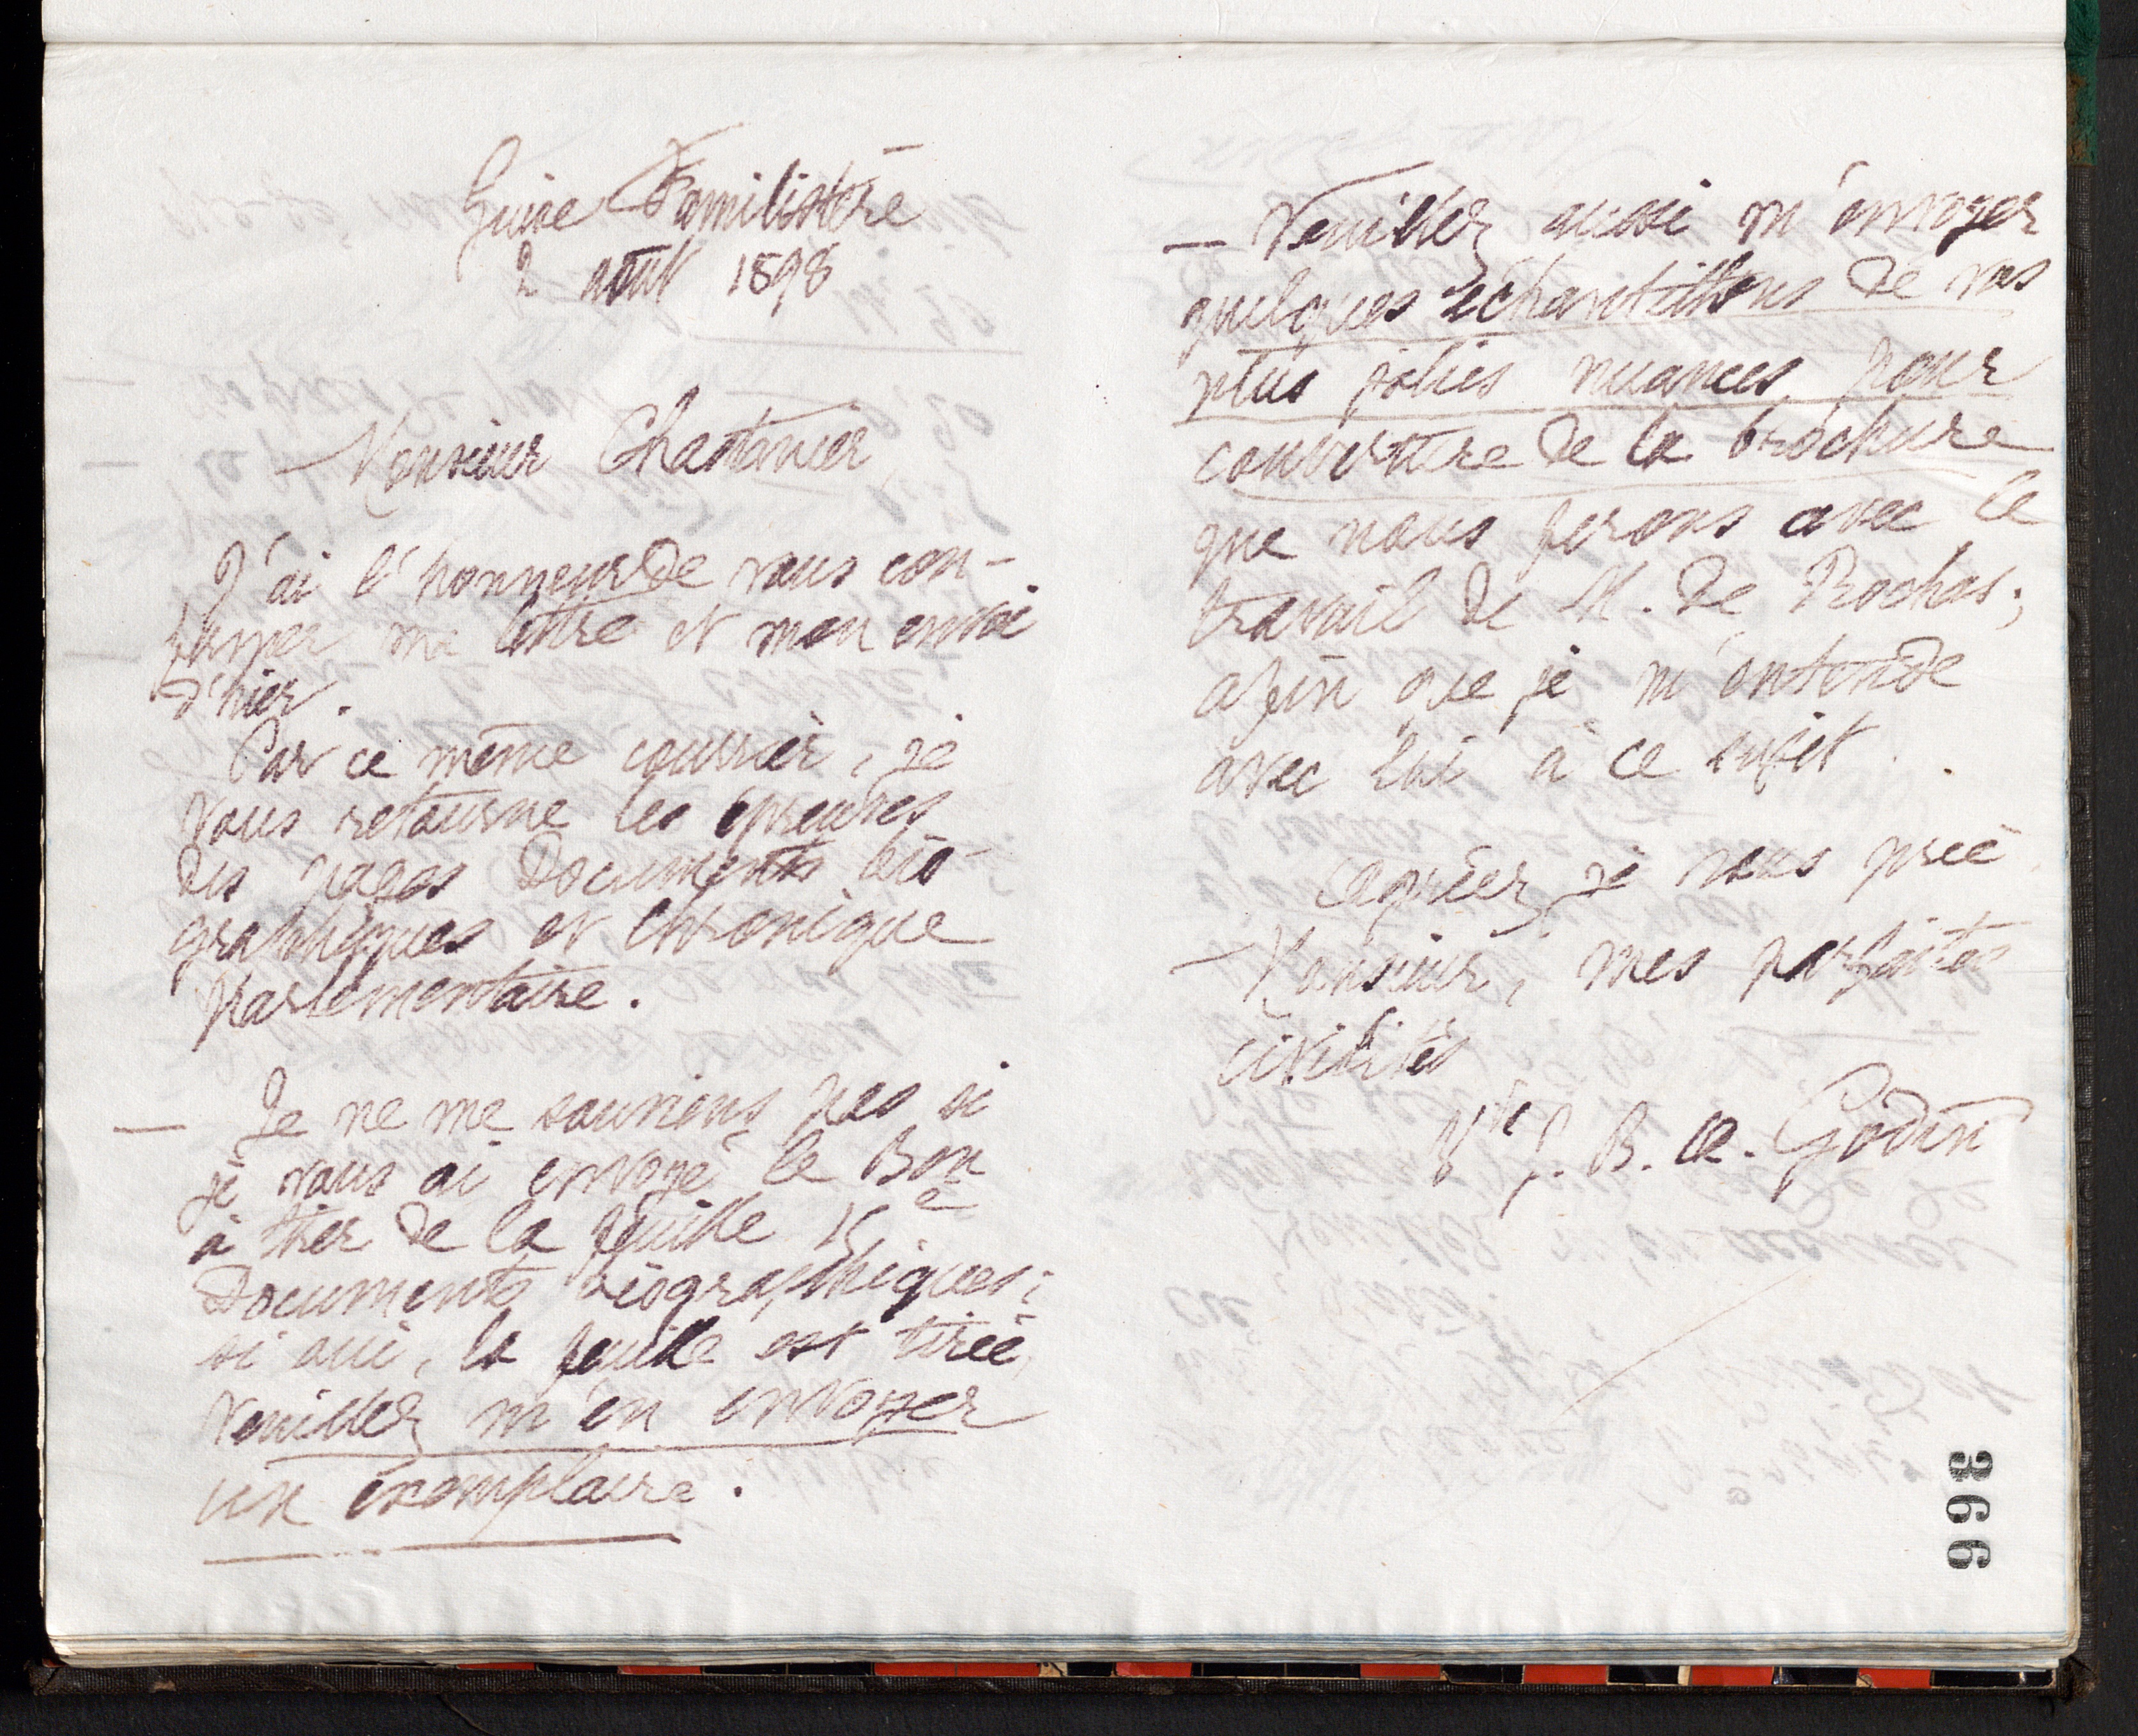 Guise Familistère
2 août 1898
Monsieur Chastanier
J'ai l'honneur de vous con-
firmer ma lettre et mon envoi
d'hier.
Par ce même courrier, je
vous retourne les épreuves
des pages Documents bio-
graphiques et Chronique
parlementaire.
— Je ne me souviens pas si
je vous ai envoyé le Bon
à tirer de la feuille 15e
Documents biographiques;
si oui, la feuille est tirée,
veuillez m'en envoyer
un exemplaire.
— Veuillez aussi m'envoyer
quelques échantillons de vos
plus jolies nuances pour
couverture de la brochure
que nous ferons avec le
travail de M. de Rochas;
afin que je m'entende
avec lui à ce sujet.
Agréez, je vous prie
Monsieur, mes parfaites
civilités
Vve J. B. A. Godin
366